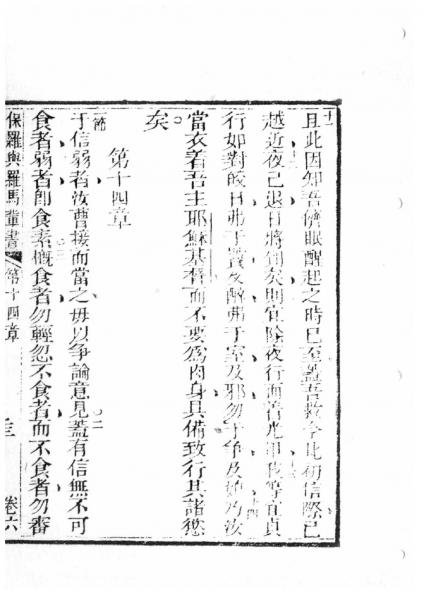 十一
且此因知吾儕眠醒起之時已至蓋吾救今比初信際已
越近夜已退日將到矣則宜除夜行而著光甲我等宜貞
行如對皎日弗于饕及醉弗于室及邪勿于爭及妒乃汝
當衣着吾主耶穌基督而不要爲肉身具備致行其諸慾
矣
第十四章
一節
于信弱者汝曹接而當之毋以爭論意見蓋有信無不可
食者弱者即食素概食者勿輕忽不食者而不食者勿審
保羅與羅馬輩書 第十四章 卷六